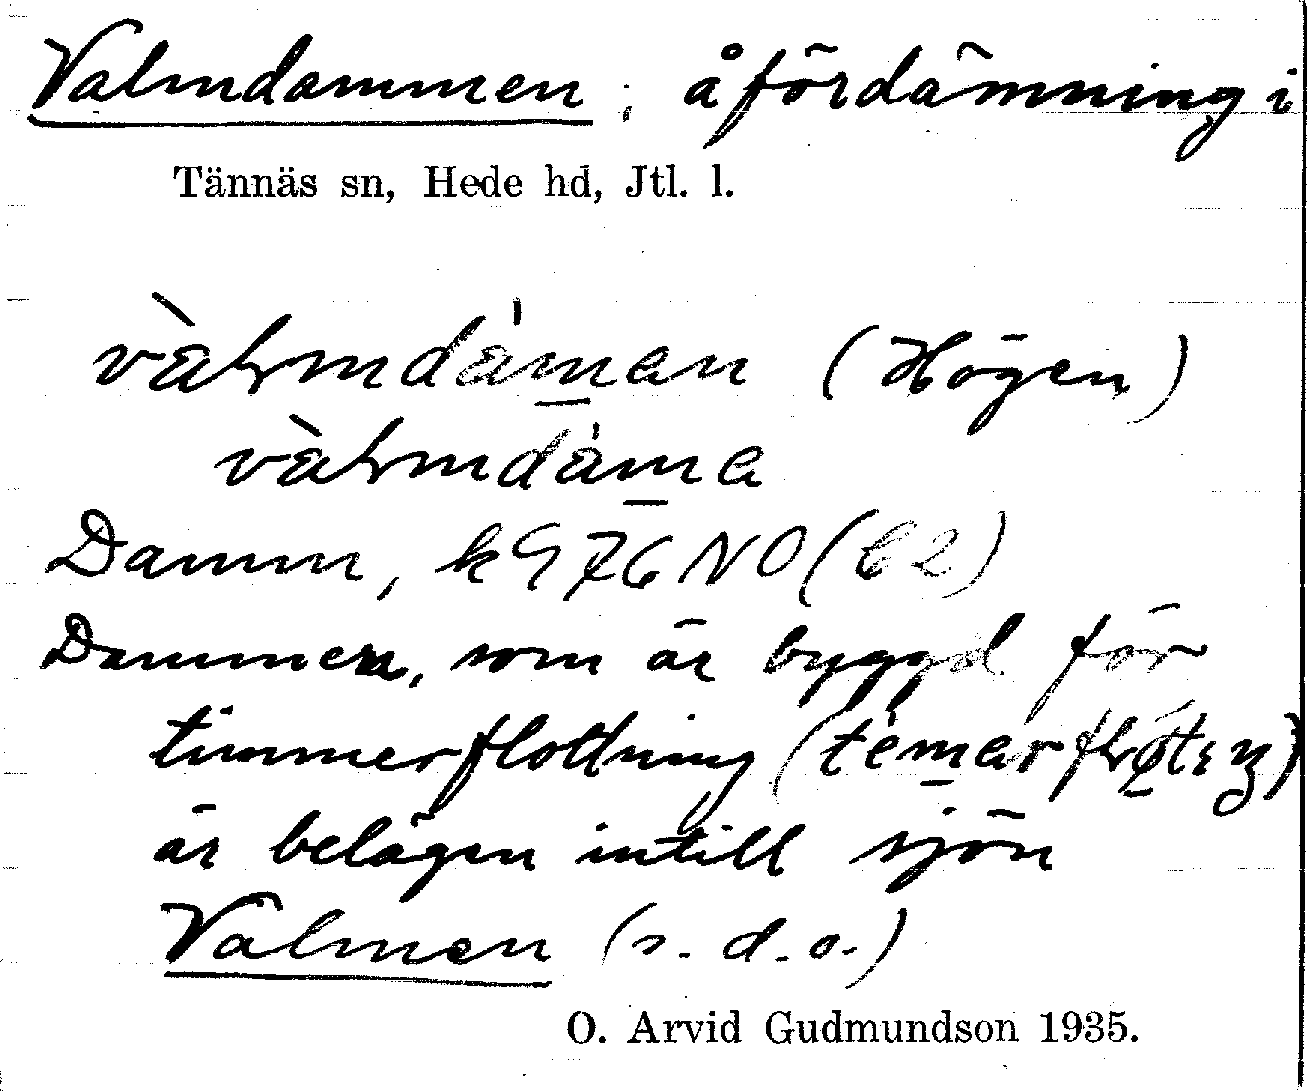 Valmdammen ; åfördämning i
Tännäs sn, Hede hd, Jtl. l.
vàɫmdàmen (Högen)
vàɫmdàma
Damm, k976NO(C2)
Dammen, som är byggd för
timmerflottning (tèmarfɫøtıŋ)
är belägen intill sjön
Valmen (s. d. o.)
O. Arvid Gudmundson 1935.